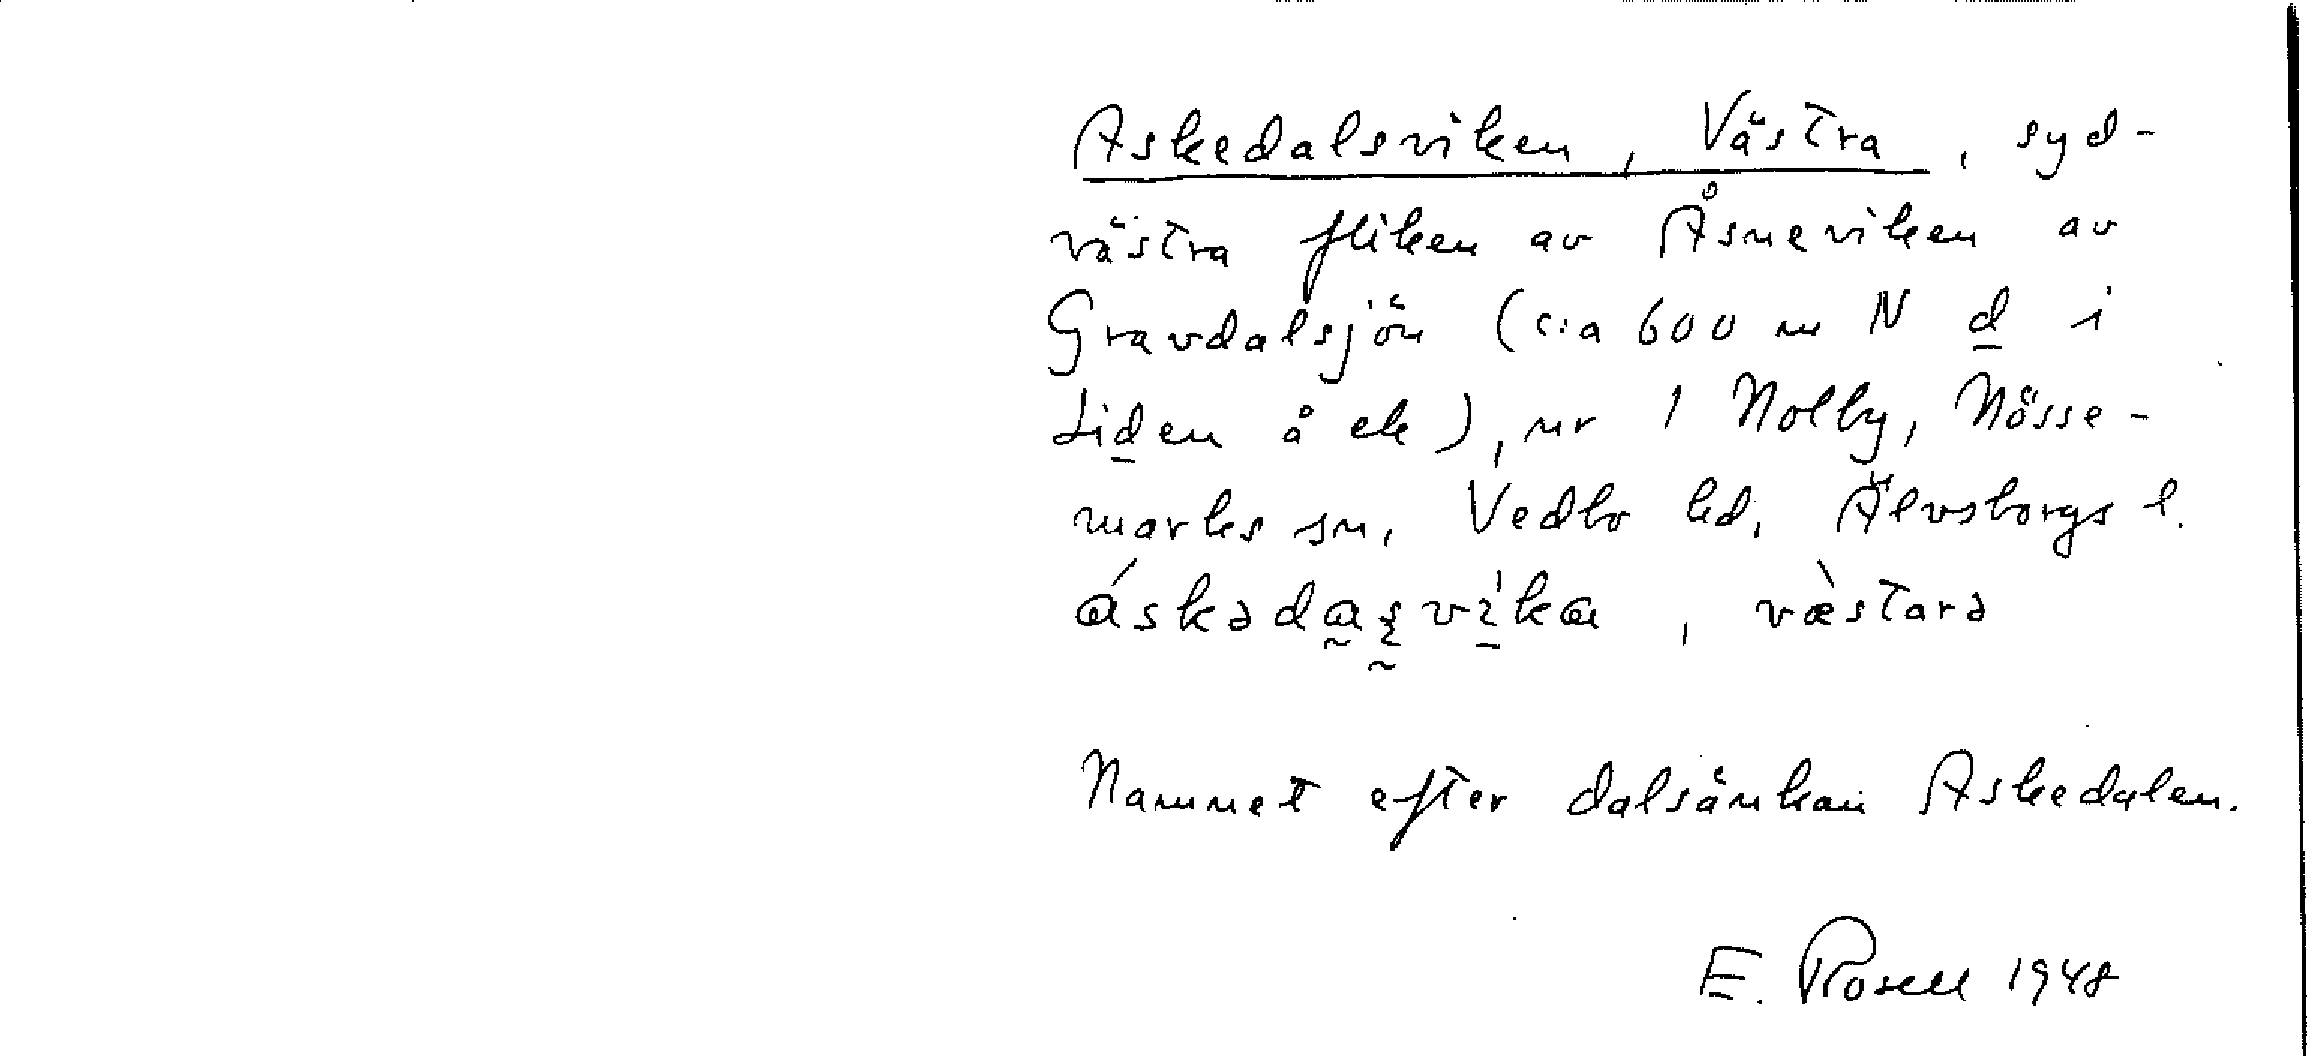 Askedalsviken, Västra, syd-
västra fliken av Åsneviken av
Gravdalsjön (c:a 600 m N d i
Liden å ek), nr 1 Nolby, Nösse-
marks sn, Vedbo hd, Älvsborgs l.
áskədas̨vìka, væ̀starə
Namnet efter dalsänkan Askedalen.
E. Rosell 1948